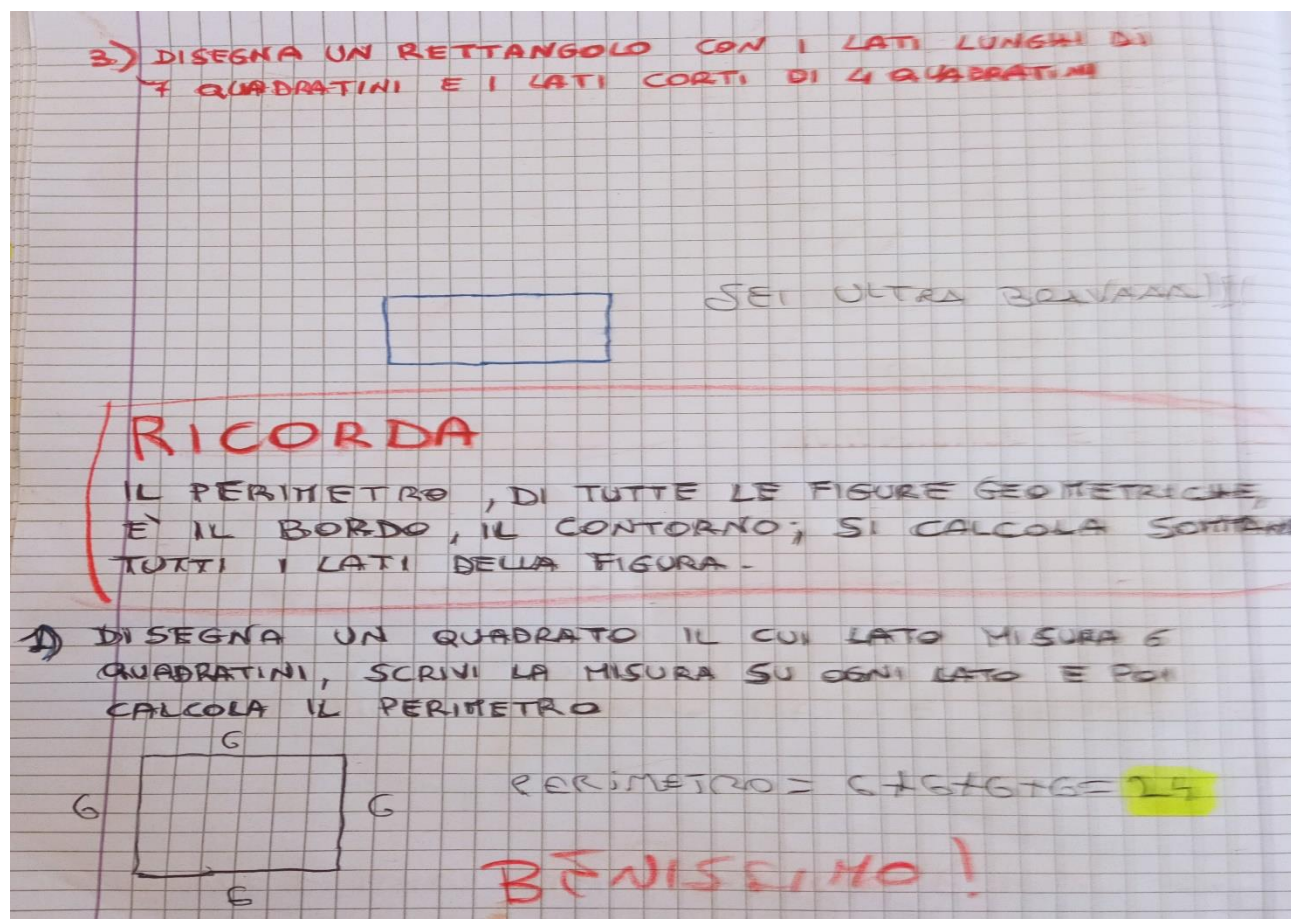 3) DISEGNA UN RETTANGOLO CON I LATI LUNGHI DI
7 QUADRATINI E I LATI CORTI DI 4 QUADRATINI
SEI ULTRA
RICORDA
IL PERIMETRO, DI TUTTE LE FIGURE GEOMETRICHE,
E' IL BORDO, IL CONTORNO; SI CALCOLA
TUTTI I LATI DELLA FIGURA.
1) DISEGNA UN QUADRATO IL CUI LATO MISURA 6
QUADRATINI, SCRIVI LA MISURA SU OGNI LATO E POI
CALCOLA IL PERIMETRO
6
6
6
PERIMETRO = 6+6+6+6= 24
6
BENISSIMO!